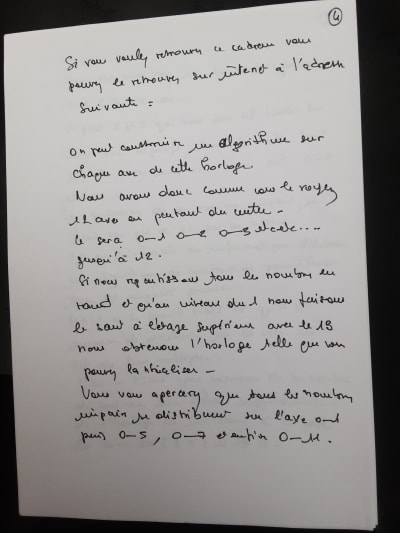 4
Si vous voulez retrouver ce cadran vous
pouvez le retrouver sur internet à l'adresse
suivante :
On peut construire un algorithme sur
chaque axe de cette horloge.
Nous avons donc comme vous le voyez
12 axes en partant du centre -
Ce sera 0-1 0-2 0-3 et etc....
jusqu'à 12.
Si nous répartissons tous les nombres en
rond et qu'au niveau du 1 nous faisons
le saut à l'étage supérieur avec le 13
nous obtenons l'horloge telle que vous
pouvez la visualiser -
Vous vous apercevez que tous les nombres
se distribuent sur l'axe 0-1
puis 0-5, 0-7 et enfin 0-11.